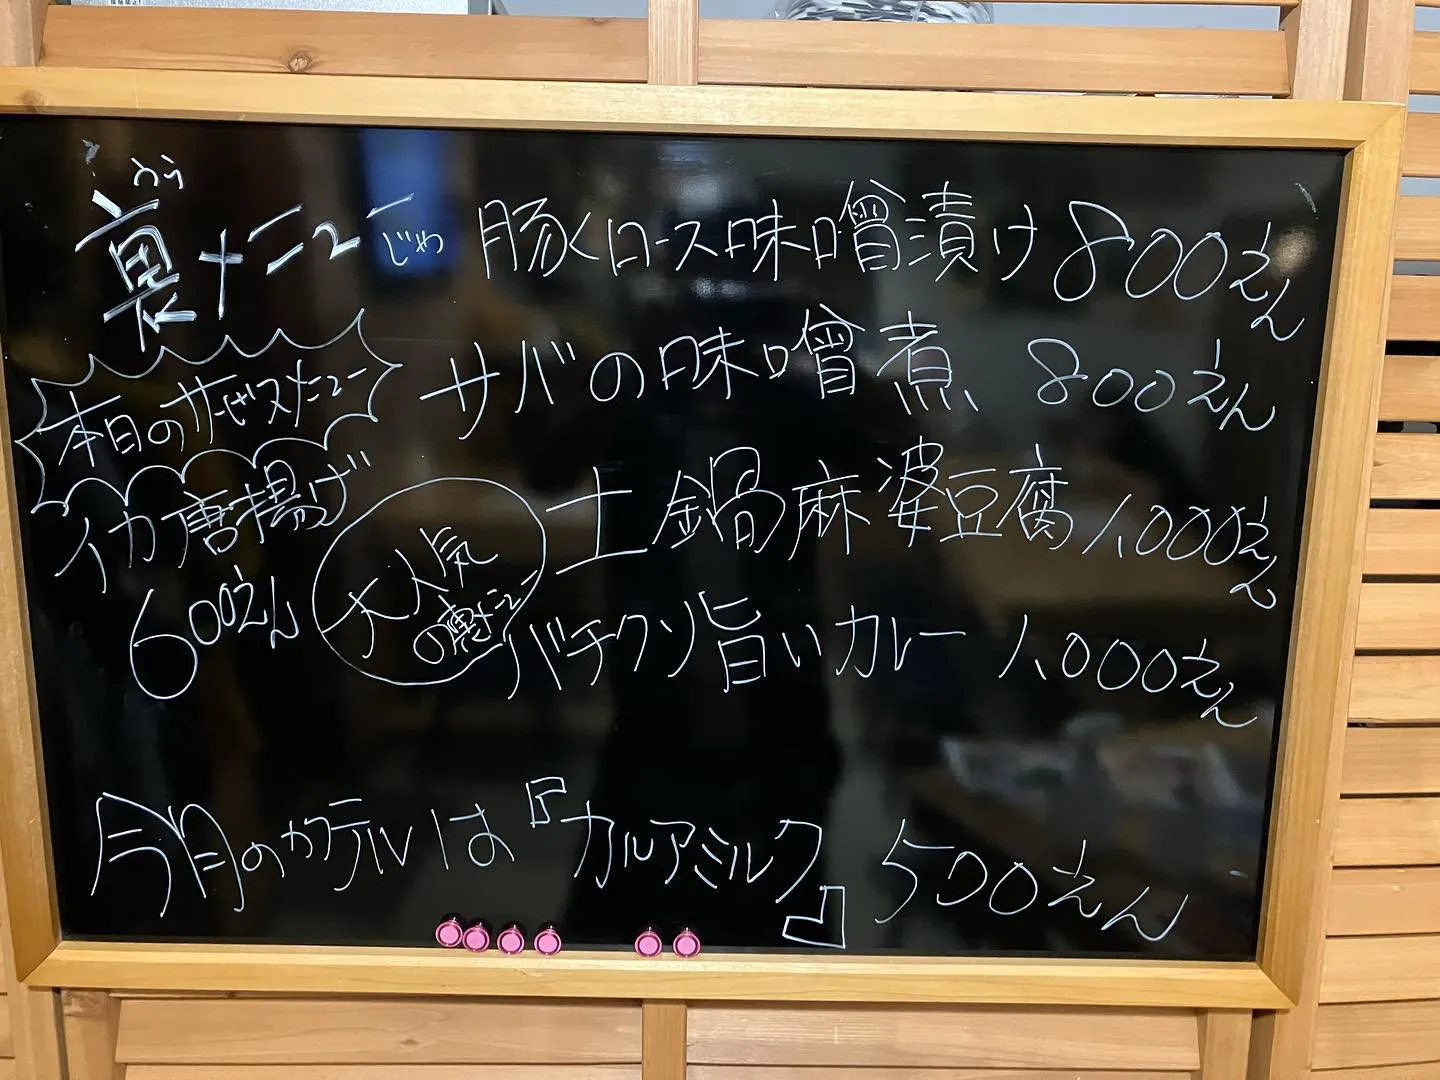 うら
裏メニューじゃ
豚ロース味噌漬け 800えん
サバの味噌煮 800えん
本日のサービスメニュー
イカ唐揚げ
600えん
大人気
の裏メニュー
土鍋麻婆豆腐 1,000えん
バチクソ旨いカレー 1,000えん
今月のカクテルは『カルアミルク』 500えん